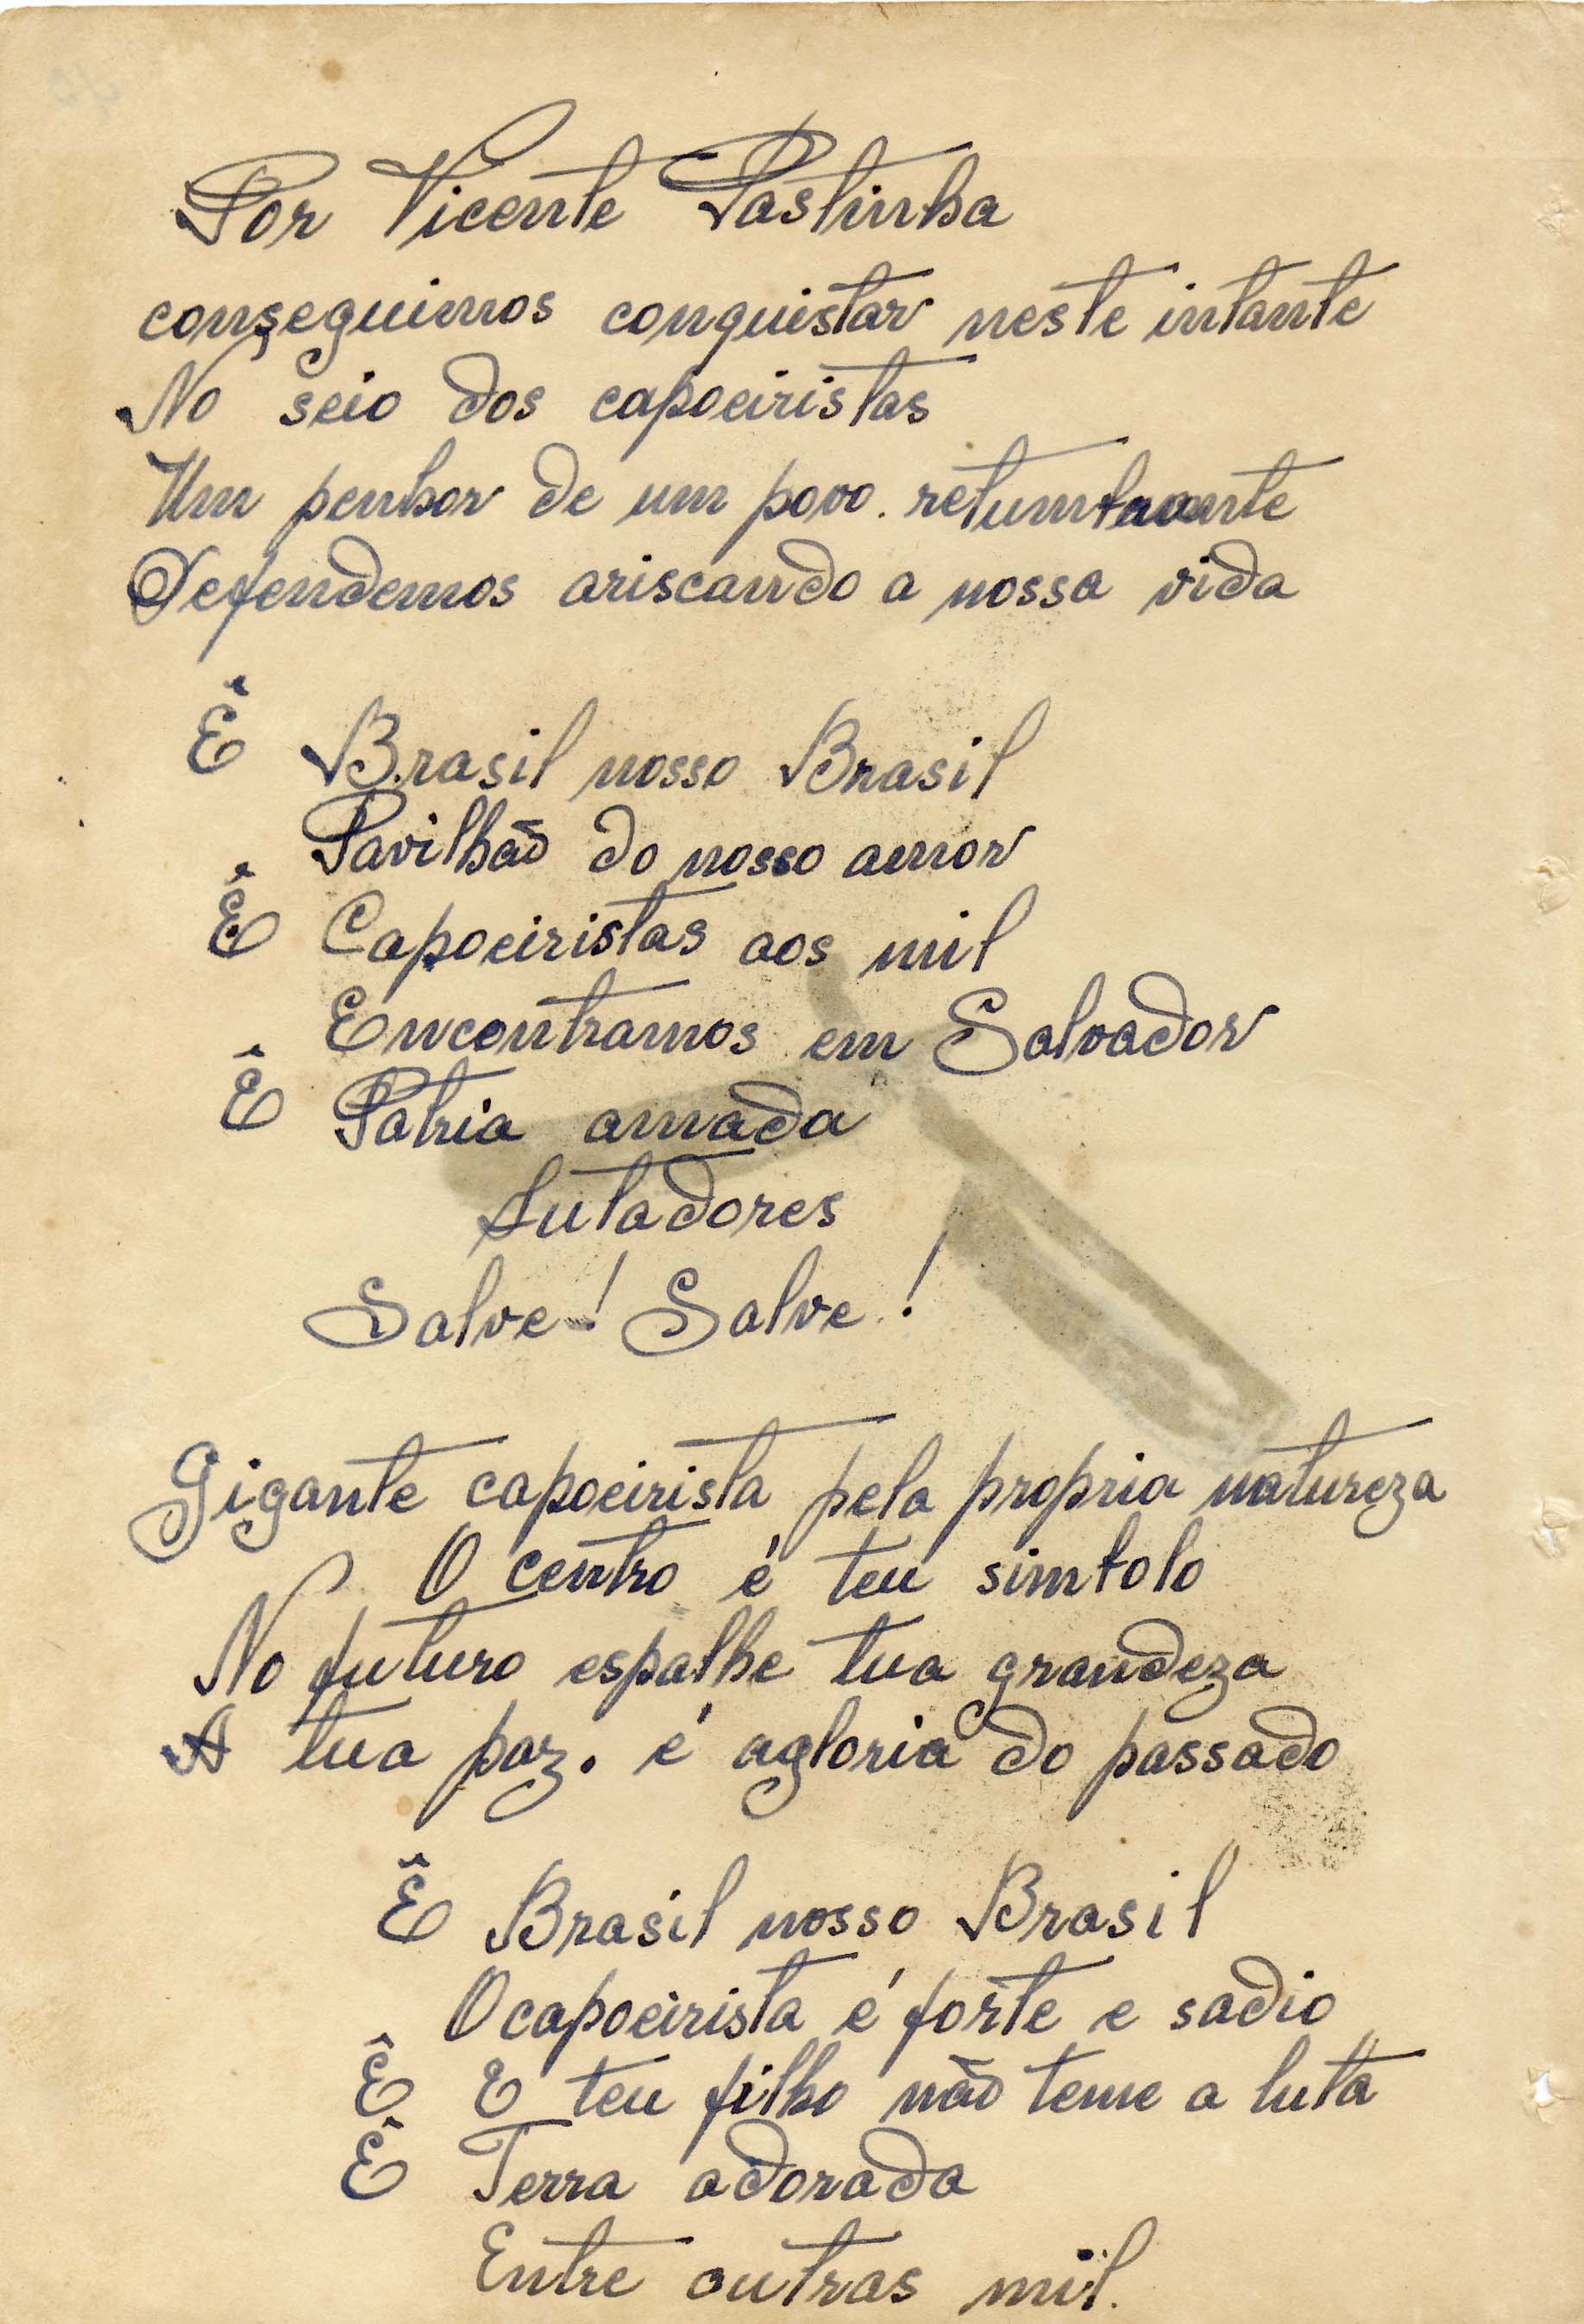 Por Vicente Pastinha
conseguimos conquistar neste intante
No seio dos capoeiristas
Um penhor de um povo. retumbante
Defendemos ariscando a nossa vida
Ê Brasil nosso Brasil
Pavilhão do nosso amor
Ê Capoeiristas aos mil
Encontramos em Salvador
Ê Patria amada
Lutadores
Salve! Salve!
Gigante capoeirista pela propria natureza
O centro é teu simbolo
No futuro espalhe tua grandeza
A tua paz. é agloria do passado
Ê Brasil nosso Brasil
O capoeirista é forte e sadio
Ê E teu filho não teme a luta
Ê Terra adorada
Entre outras mil.